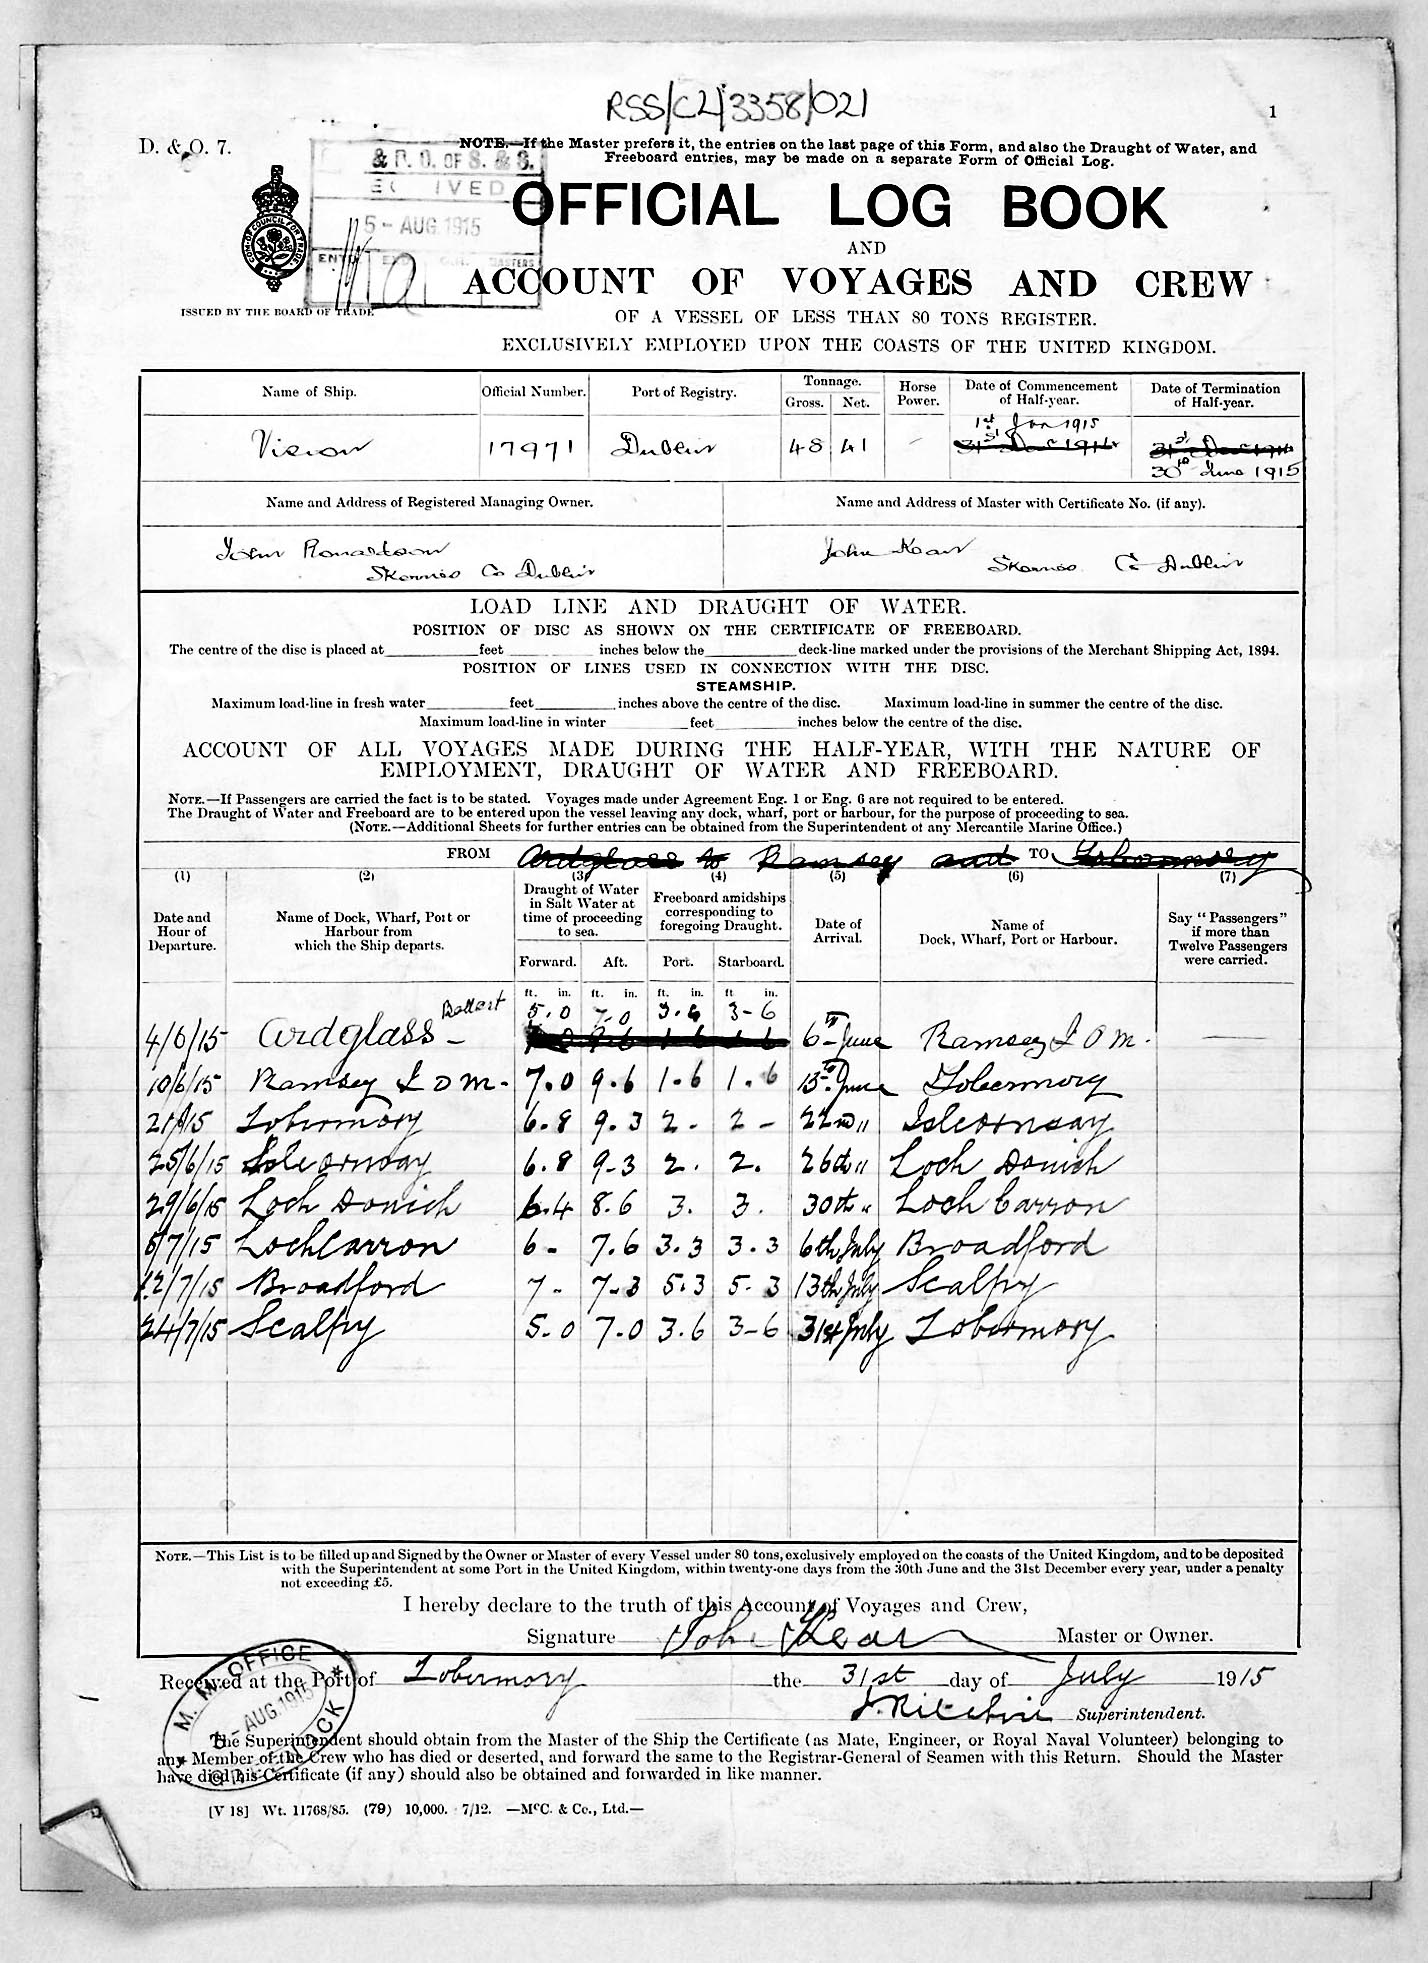 RSS/CL/3358/021
1
D. & O. 7.
NOTE.—If the Master prefers it, the entries on the last page of this Form, and also the Draught of Water, and
Freeboard entries, may be made on a separate Form of Official Log.
& R. G. OF S. & S.
5 - AUG. 1915
OFFICIAL LOG BOOK
AND
ACCOUNT OF VOYAGES AND CREW
ISSUED BY THE BOARD OF TRADE
OF A VESSEL OF LESS THAN 80 TONS REGISTER.
EXCLUSIVELY EMPLOYED UPON THE COASTS OF THE UNITED KINGDOM.
Name of Ship. Official Number. Port of Registry. Tonnage. Gross. Net. Horse Power. Date of Commencement of Half-year. Date of Termination of Half-year.
1st Jan 1915
Vision 17971 Dublin 48 41 - 31st Dec 1914 31st Dec 1914
30th June 1915
Name and Address of Registered Managing Owner. Name and Address of Master with Certificate No. (if any).
John Ronaldson John Kearn
Skerries Co Dublin Skerries Co Dublin
LOAD LINE AND DRAUGHT OF WATER.
POSITION OF DISC AS SHOWN ON THE CERTIFICATE OF FREEBOARD.
The centre of the disc is placed at feet inches below the deck-line marked under the provisions of the Merchant Shipping Act, 1894.
POSITION OF LINES USED IN CONNECTION WITH THE DISC.
STEAMSHIP.
Maximum load-line in fresh water feet inches above the centre of the disc. Maximum load-line in summer the centre of the disc.
Maximum load-line in winter feet inches below the centre of the disc.
ACCOUNT OF ALL VOYAGES MADE DURING THE HALF-YEAR, WITH THE NATURE OF
EMPLOYMENT, DRAUGHT OF WATER AND FREEBOARD.
NOTE.—If Passengers are carried the fact is to be stated. Voyages made under Agreement Eng. 1 or Eng. 6 are not required to be entered.
The Draught of Water and Freeboard are to be entered upon the vessel leaving any dock, wharf, port or harbour, for the purpose of proceeding to sea.
(NOTE.—Additional Sheets for further entries can be obtained from the Superintendent of any Mercantile Marine Office.)
FROM Ardglass to Ramsey and TO Tobermory
(1) (2) (3) (4) (5) (6) (7)
Date and Hour of Departure. Name of Dock, Wharf, Port or Harbour from which the Ship departs. Draught of Water in Salt Water at time of proceeding to sea. Freeboard amidships corresponding to foregoing Draught. Date of Arrival. Name of Dock, Wharf, Port or Harbour. Say "Passengers" if more than Twelve Passengers were carried.
Forward. Aft. Port. Starboard.
ft. in. ft. in. ft. in. ft in.
Ballast 5.0 7.0 3.6 3-6
4/6/15 Ardglass - 6th June Ramsey I O M. —
10/6/15 Ramsey I O M. 7.0 9.6 1.6 1.6 15th June Tobermory
21/6/15 Tobermory 6.8 9.3 2. 2- 22nd " Isleornsay
25/6/15 Isleornsay 6.8 9-3 2. 2. 26th " Loch Donich
29/6/15 Loch Donich 6.4 8.6 3. 3. 30th " Loch Carron
5/7/15 Loch Carron 6- 7.6 3.3 3.3 6th July Broadford
12/7/15 Broadford 7- 7-3 5.3 5.3 13th July Scalpy
24/7/15 Scalpy 5.0 7.0 3.6 3-6 31st July Tobermory
NOTE.—This List is to be filled up and Signed by the Owner or Master of every Vessel under 80 tons, exclusively employed on the coasts of the United Kingdom, and to be deposited
with the Superintendent at some Port in the United Kingdom, within twenty-one days from the 30th June and the 31st December every year, under a penalty
not exceeding £5.
I hereby declare to the truth of this Account of Voyages and Crew,
Signature John Kearn Master or Owner.
Received at the Port of Tobermory the 31st day of July 1915
J. Ritchie Superintendent.
M. M. OFFICE
AUG. 1915
GREENOCK
The Superintendent should obtain from the Master of the Ship the Certificate (as Mate, Engineer, or Royal Naval Volunteer) belonging to
any Member of the Crew who has died or deserted, and forward the same to the Registrar-General of Seamen with this Return. Should the Master
have died his Certificate (if any) should also be obtained and forwarded in like manner.
[V 18] Wt. 11768/85. (79) 10,000. 7/12. —McC. & Co., Ltd.—